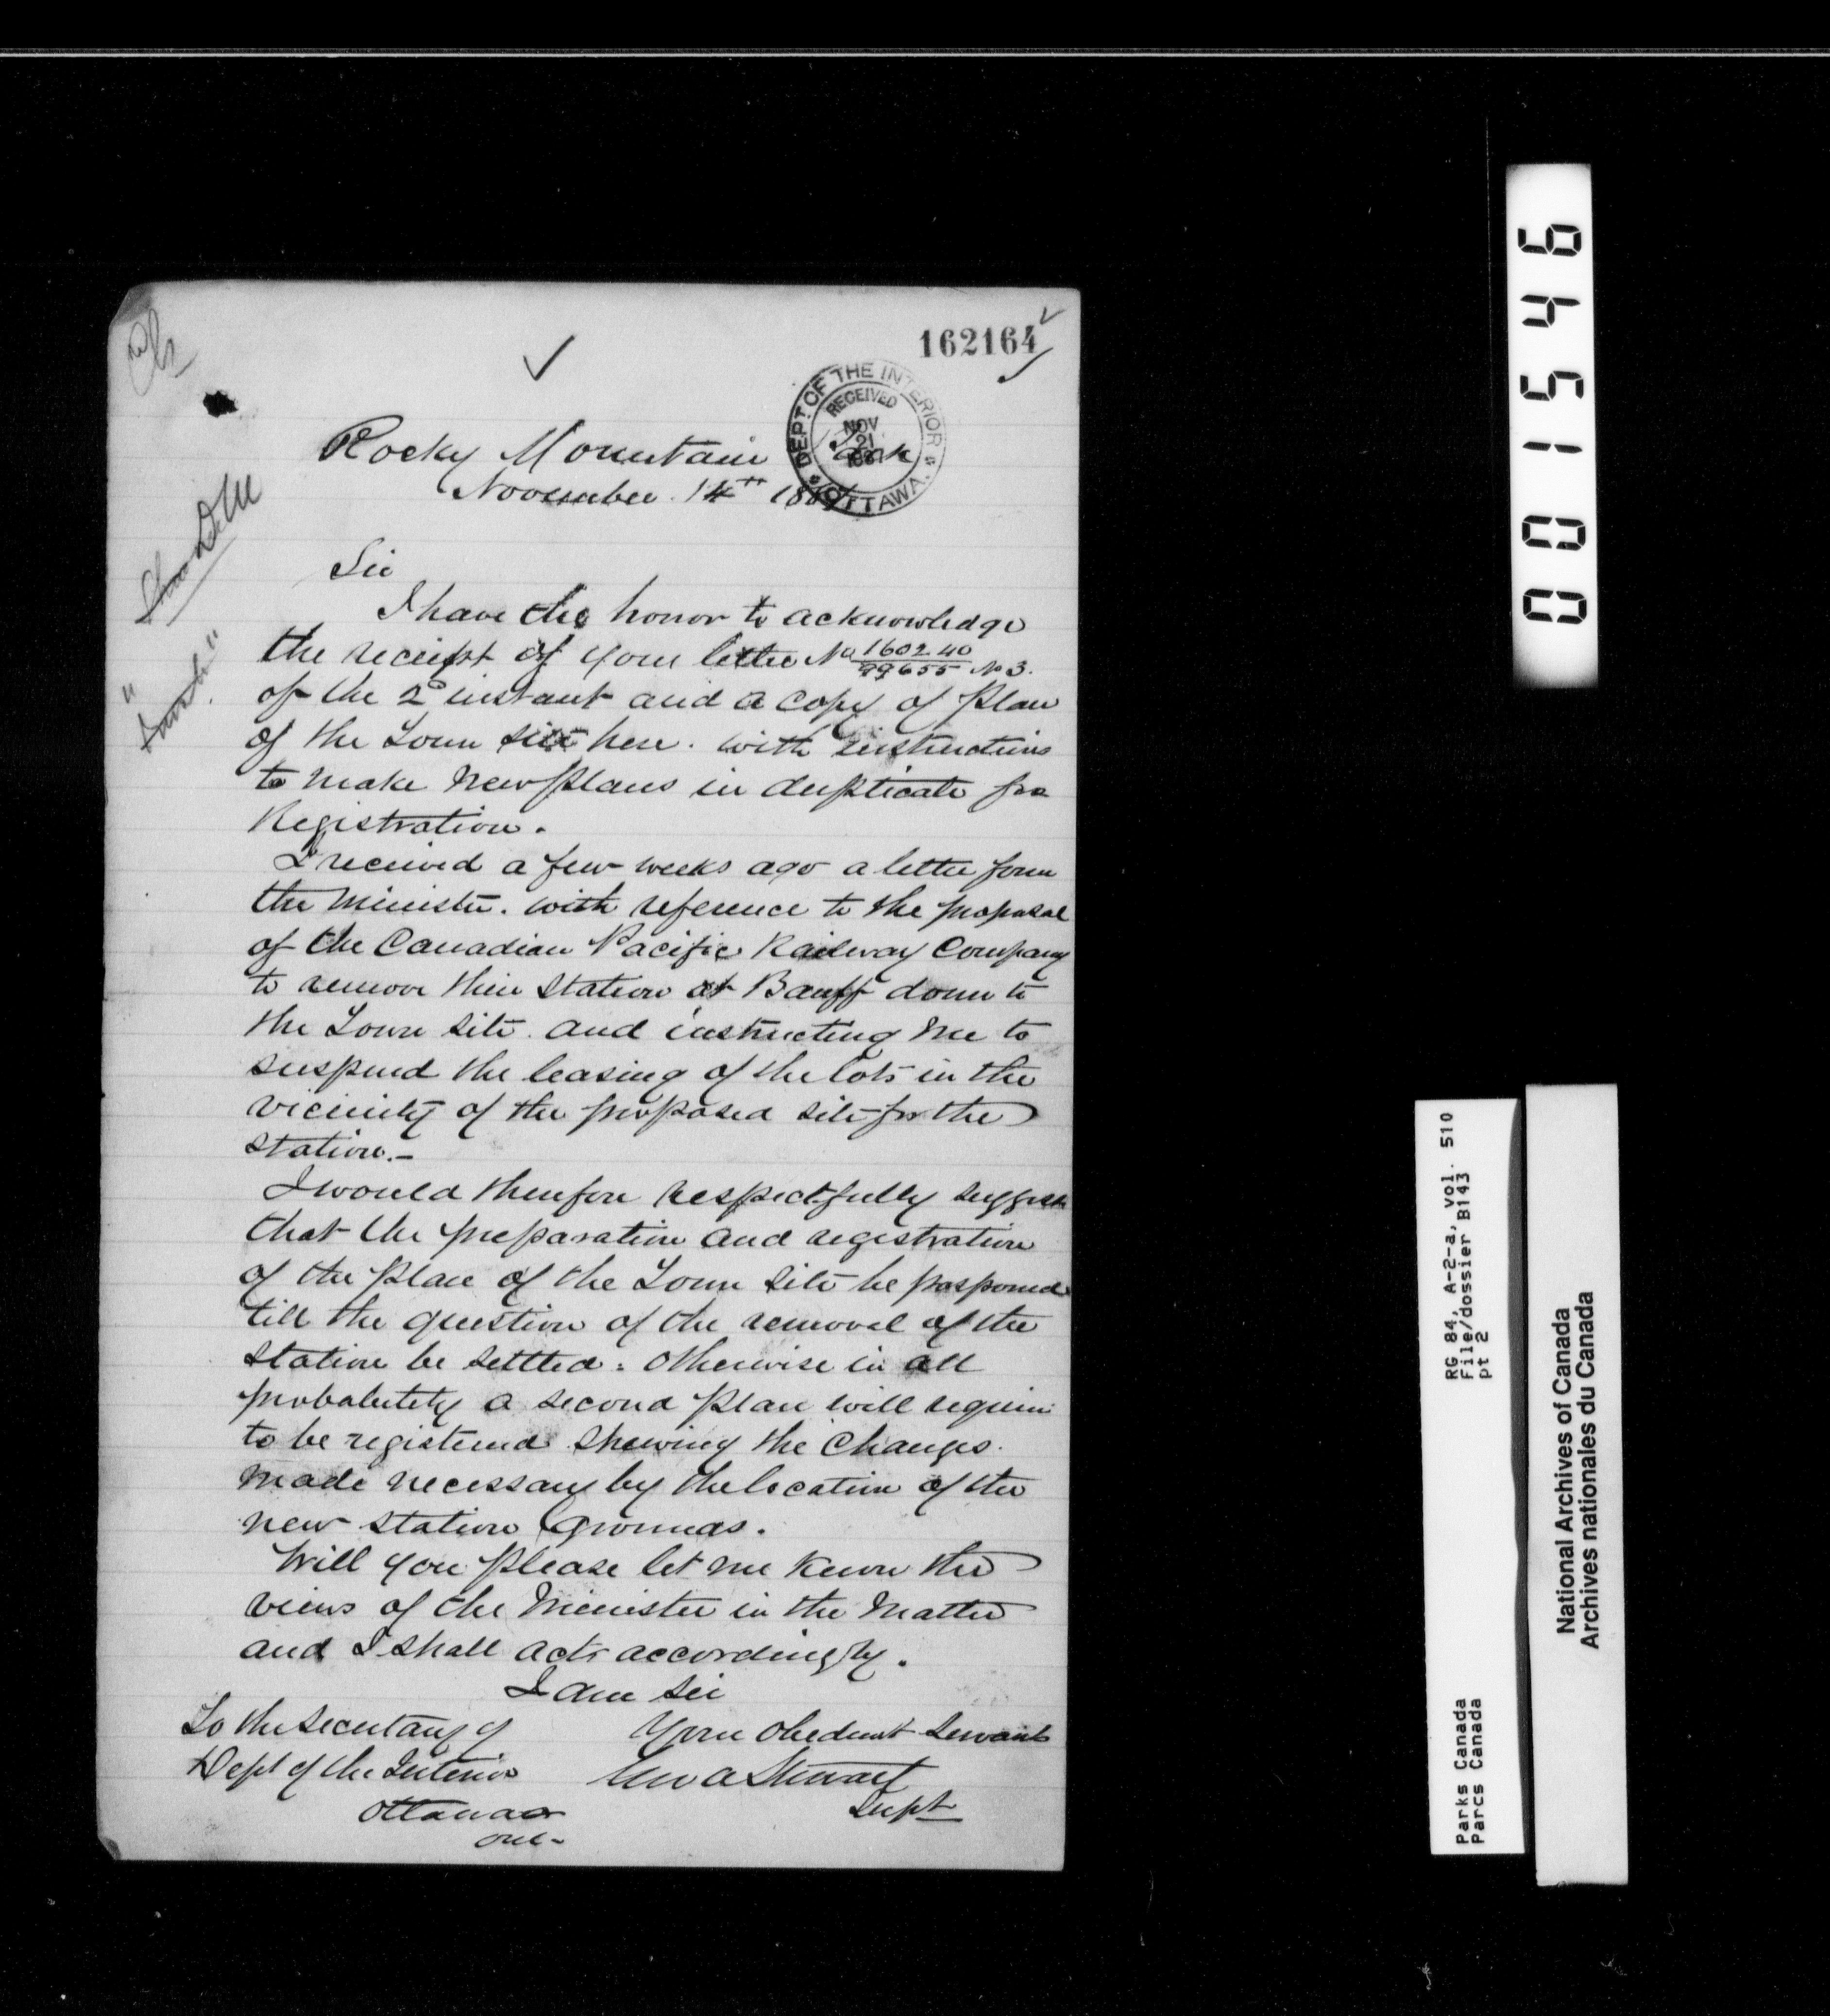 162164
DEPT OF THE INTERIOR
RECEIVED
NOV
21
1887
OTTAWA.
Rocky Mountain Park
November 14th 1887
Sir
I have the honor to acknowledge
the receipt of your letter No 160240/99655 No 3.
of the 2d instant and a copy of plan
of the Town site here. with instructions
to make new plans in duplicate for
Registration.
I received a few weeks ago a letter from
the Minister. with reference to the proposal
of the Canadian Pacific Railway Company
to remove their station at Banff down to
the Town site. and instructing me to
suspend the leasing of the lots in the
vicinity of the proposed site for the
station.-
I would therefore respectfully suggest
that the preparation and registration
of the plan of the Town site be posponed
till the question of the removal of the
station be settled: otherwise in all
probabutity a second plan will require
to be registered shewing the changes.
made necessary by the location of the
new station grounds.
Will you please let me know the
views of the Minister in the matter
and I shall act accordingly.
I am Sir
Your obedient Servant
Geo A Stewart
Supt
To the Secretary of
Dept of the Interior
Ottawa
Ont-
001546
RG 84, A-2-a, vol. 510
File/dossier B143
pt 2
Parks Canada
Parcs Canada
National Archives of Canada
Archives nationales du Canada